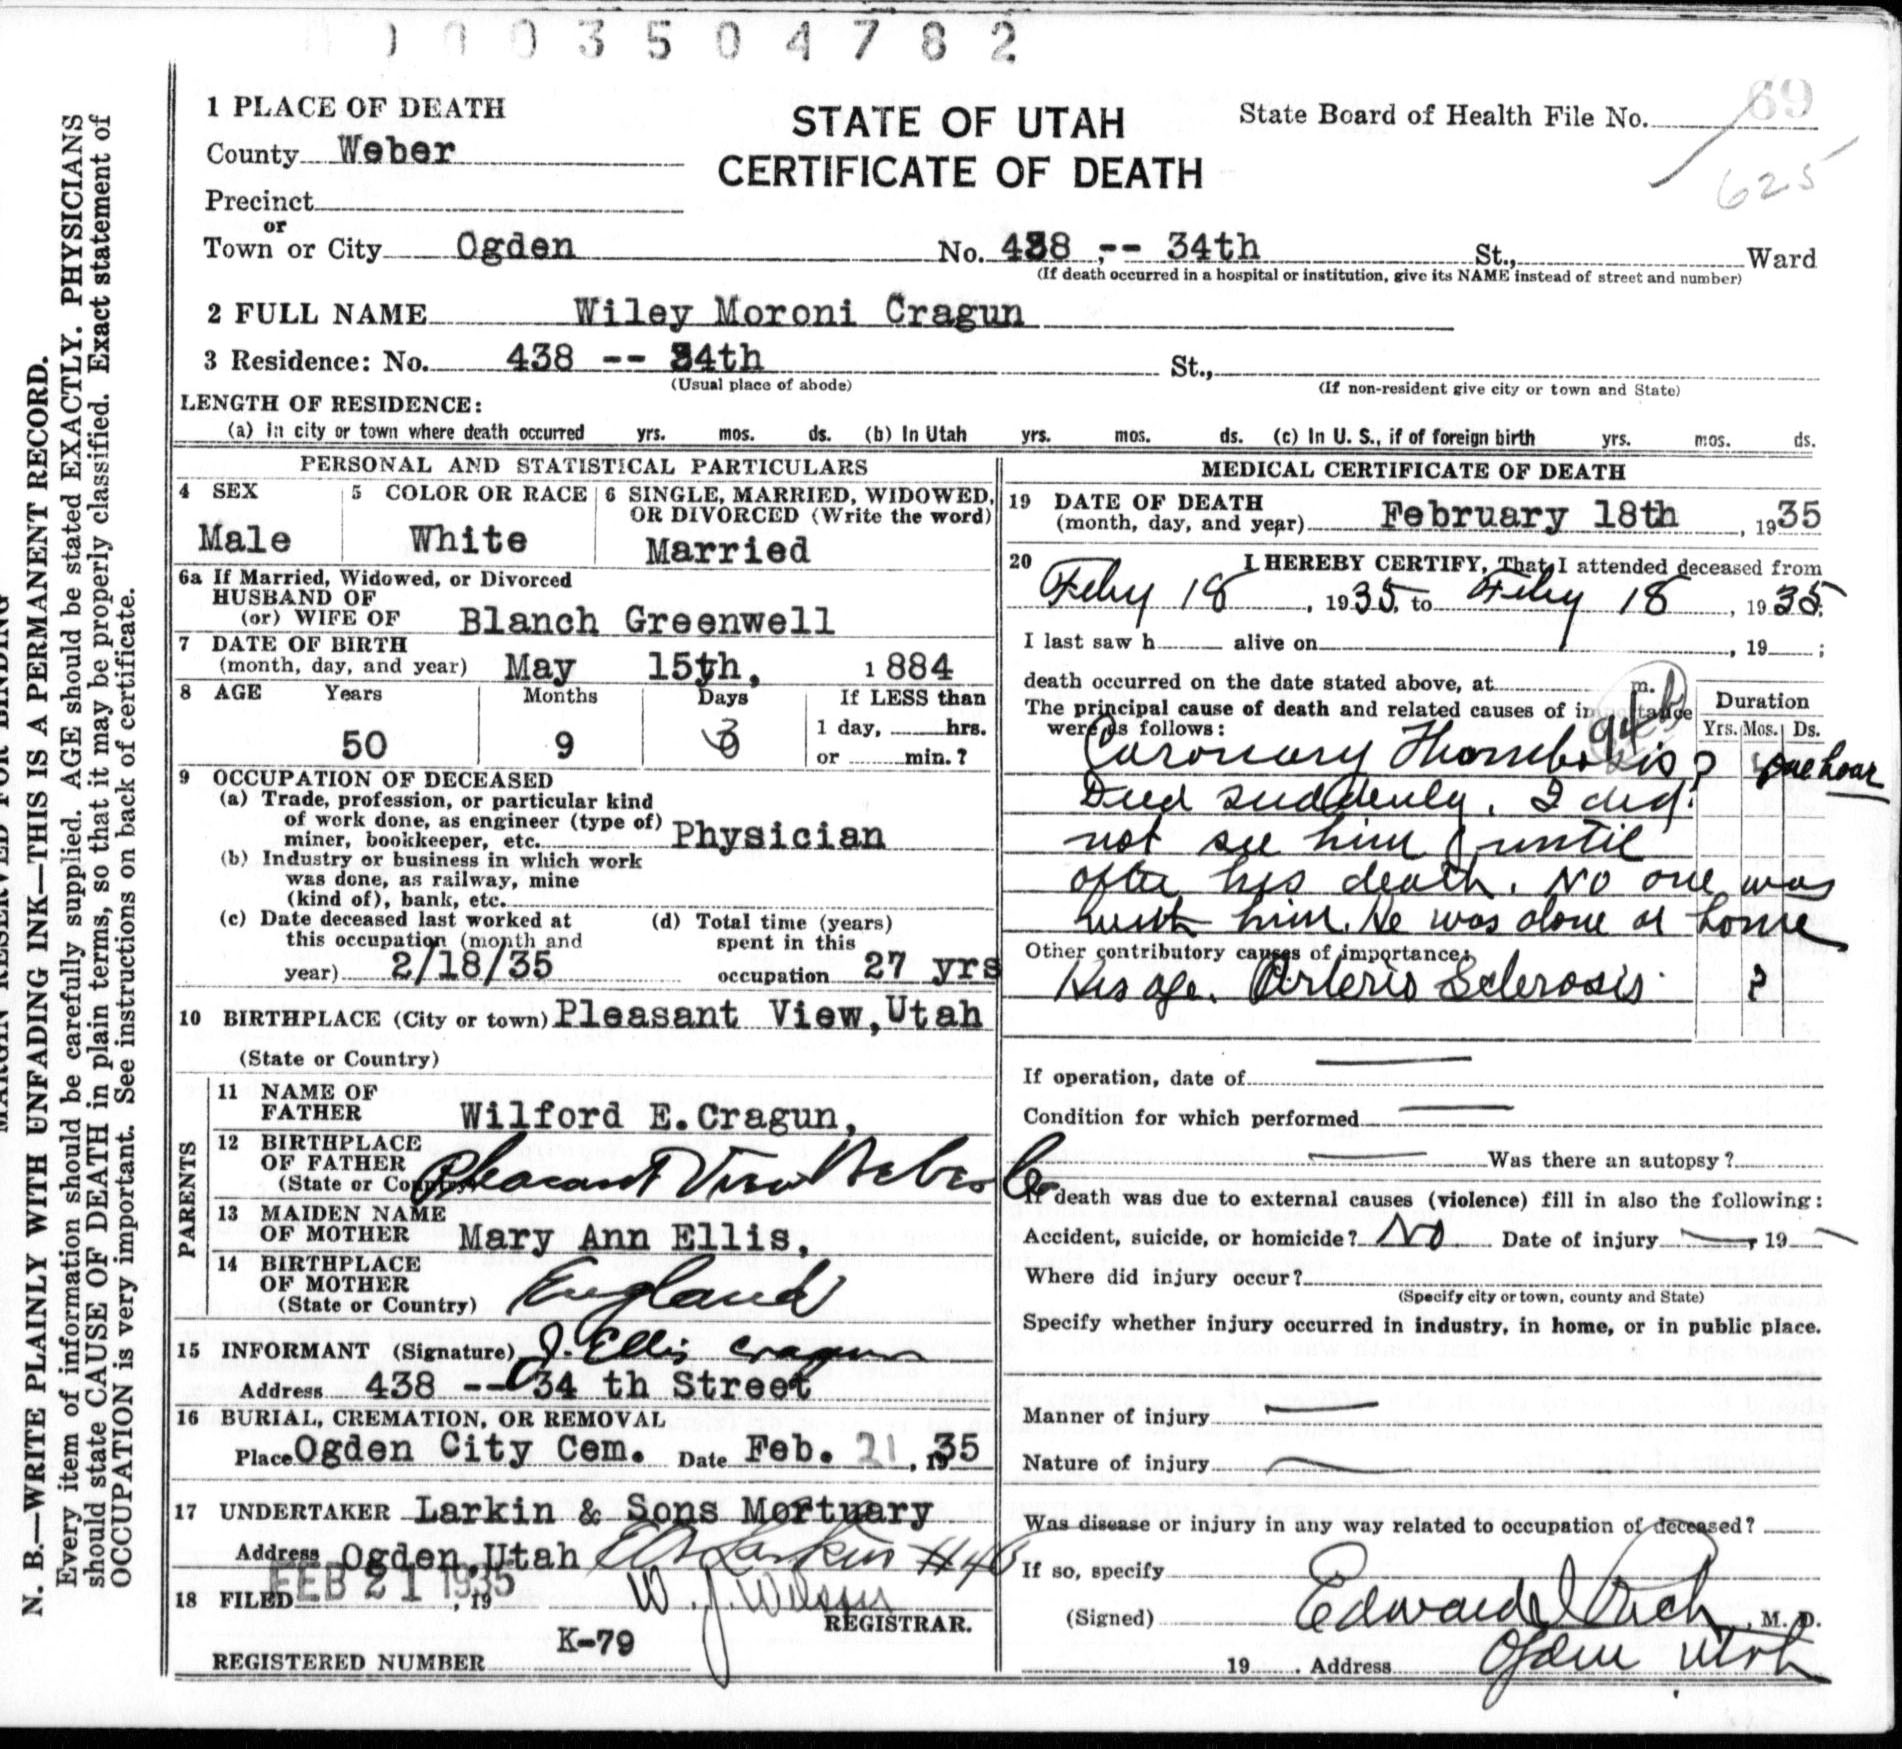 0003504782
1 PLACE OF DEATH
STATE OF UTAH
CERTIFICATE OF DEATH
State Board of Health File No. 69
625
County Weber
Precinct
or
Town or City Ogden No. 438 -- 34th St., Ward
(If death occurred in a hospital or institution, give its NAME instead of street and number)
2 FULL NAME Wiley Moroni Cragun
3 Residence: No. 438 -- 34th St.,
(Usual place of abode) (If non-resident give city or town and State)
LENGTH OF RESIDENCE:
(a) in city or town where death occurred yrs. mos. ds. (b) In Utah yrs. mos. ds. (c) In U. S., if of foreign birth yrs. mos. ds.
PERSONAL AND STATISTICAL PARTICULARS
4 SEX
Male
5 COLOR OR RACE
White
6 SINGLE, MARRIED, WIDOWED,
OR DIVORCED (Write the word)
Married
6a If Married, Widowed, or Divorced
HUSBAND OF
(or) WIFE OF Blanch Greenwell
7 DATE OF BIRTH
(month, day, and year) May 15th, 1884
8 AGE Years Months Days If LESS than
1 day, hrs.
or min.?
50 9 3
9 OCCUPATION OF DECEASED
(a) Trade, profession, or particular kind
of work done, as engineer (type of)
miner, bookkeeper, etc. Physician
(b) Industry or business in which work
was done, as railway, mine
(kind of), bank, etc.
(c) Date deceased last worked at
this occupation (month and
year) 2/18/35
(d) Total time (years)
spent in this
occupation 27 yrs
10 BIRTHPLACE (City or town) Pleasant View, Utah
(State or Country)
PARENTS
11 NAME OF
FATHER Wilford E. Cragun,
12 BIRTHPLACE
OF FATHER
(State or Country) Pleasant View Weber Co
13 MAIDEN NAME
OF MOTHER Mary Ann Ellis,
14 BIRTHPLACE
OF MOTHER
(State or Country) England
15 INFORMANT (Signature) J. Ellis Cragun
Address 438 -- 34 th Street
16 BURIAL, CREMATION, OR REMOVAL
Place Ogden City Cem. Date Feb. 21, 1935
17 UNDERTAKER Larkin & Sons Mortuary
Address Ogden, Utah Larkin #40
FEB 21 1935
18 FILED , 19 W. J. Wilson
REGISTRAR.
K-79
REGISTERED NUMBER
MEDICAL CERTIFICATE OF DEATH
19 DATE OF DEATH
(month, day, and year) February 18th, 1935
20 I HEREBY CERTIFY, That I attended deceased from
Feby 18, 1935, to Feby 18, 1935;
I last saw h alive on , 19 ;
death occurred on the date stated above, at m.
The principal cause of death and related causes of importance
were as follows:
94b
Duration
Yrs. Mos. Ds.
Coronary Thrombosis ? One hour
Died suddenly. I did
not see him until
after his death. No one was
with him. He was alone at home
Other contributory causes of importance:
His age. Arterio Sclerosis ?
If operation, date of
Condition for which performed
Was there an autopsy?
If death was due to external causes (violence) fill in also the following:
Accident, suicide, or homicide? No Date of injury , 19
Where did injury occur?
(Specify city or town, county and State)
Specify whether injury occurred in industry, in home, or in public place.
Manner of injury
Nature of injury
Was disease or injury in any way related to occupation of deceased?
If so, specify
(Signed) Edward I Rich, M. D.
19 . Address Ogden Utah
MARGIN RESERVED FOR BINDING
N. B.—WRITE PLAINLY WITH UNFADING INK—THIS IS A PERMANENT RECORD.
Every item of information should be carefully supplied. AGE should be stated EXACTLY. PHYSICIANS
should state CAUSE OF DEATH in plain terms, so that it may be properly classified. Exact statement of
OCCUPATION is very important. See instructions on back of certificate.